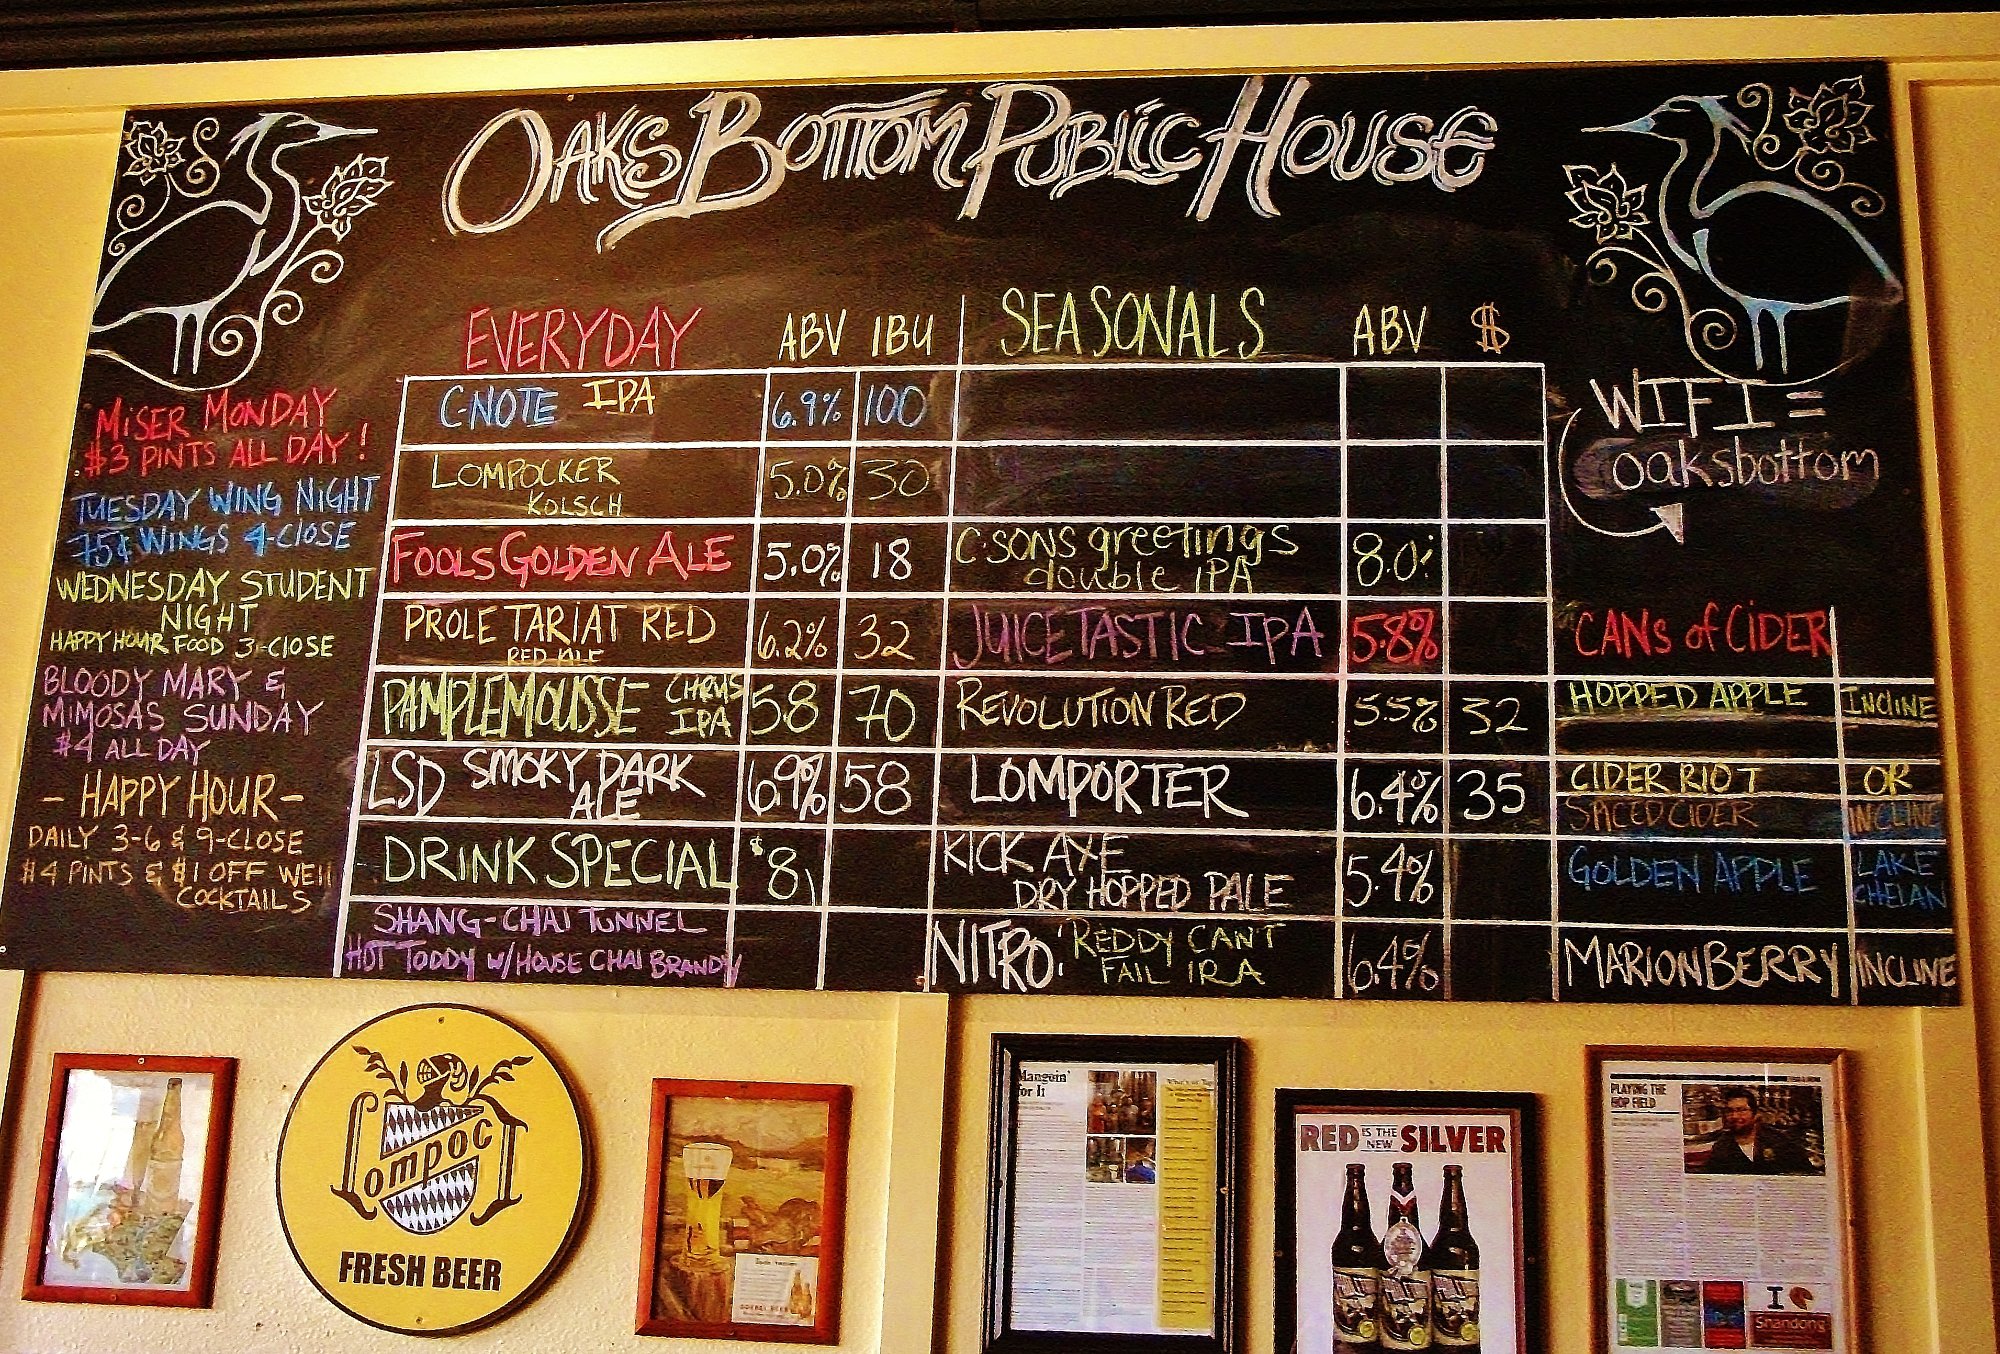 OAKS BOTTOM PUBLIC HOUSE
MISER MONDAY
$3 PINTS ALL DAY!
TUESDAY WING NIGHT
75¢ WINGS 4-CLOSE
WEDNESDAY STUDENT
NIGHT
HAPPY HOUR FOOD 3-CLOSE
BLOODY MARY &
MIMOSAS SUNDAY
$4 ALL DAY
- HAPPY HOUR -
DAILY 3-6 & 9-CLOSE
$4 PINTS & $1 OFF WELL
COCKTAILS
EVERYDAY ABV IBU
C-NOTE IPA 6.9% 100
LOMPOCKER 5.0% 30
KOLSCH
FOOLS GOLDEN ALE 5.0% 18
PROLETARIAT RED 6.2% 32
RED ALE
PAMPLEMOUSSE CITRUS 5.8 70
IPA
LSD SMOKY DARK 6.9% 58
ALE
DRINK SPECIAL $8
SHANG-CHAI TUNNEL
HOT TODDY W/HOUSE CHAI BRANDY
SEASONALS ABV $
C-SONS greetings 8.0%
double IPA
JUICETASTIC IPA 5.8%
REVOLUTION RED 5.5% 32
LOMPORTER 6.4% 35
KICK AXE 5.4%
DRY HOPPED PALE
NITRO: REDDY CAN'T 6.4%
FAIL IRA
WIFI =
oaksbottom
CANS of CIDER
HOPPED APPLE INCLINE
CIDER RIOT OR
CIDER INCLINE
GOLDEN APPLE LAKE
CHELAN
MARIONBERRY INCLINE
Lompoc
FRESH BEER
Mangoin'
for It
RED IS THE NEW SILVER
PLAYING THE
HOP FIELD
I
Shandong